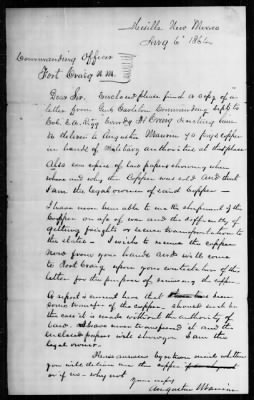 Mesilla New Mexico
Aug 6" 1864
Commanding Officer
Fort Craig N.M.
Dear Sir. Enclosed please find a copy of a
letter from Genl Carleton Commanding Dept to
Col. E. A. Rigg Comdg Ft Craig directing him
to deliver to Augustin Maurin 40 pigs copper
in hands of Military authorities at that place
Also can copies of papers showing when
where and why this Copper was sold and that
I am the legal owner of said Copper —
I have never been able to the shipment of this
Copper on a/c of war and the difficulty of
getting freights or secure transportation to
the states — I wish to receive the copper
now from your hands and will come
to Fort Craig upon your receipt of this
letter for the purpose of receiving the copper
A report is current here that there has been
some transfer of the copper, should such be
the case it is made without the authority of
law. I have never transferred it and the
enclosed papers will show you I am the
legal owner.
Please answer by return mail whether
you will deliver me the copper
or if no — why not
Yours resply
Augustin Maurin